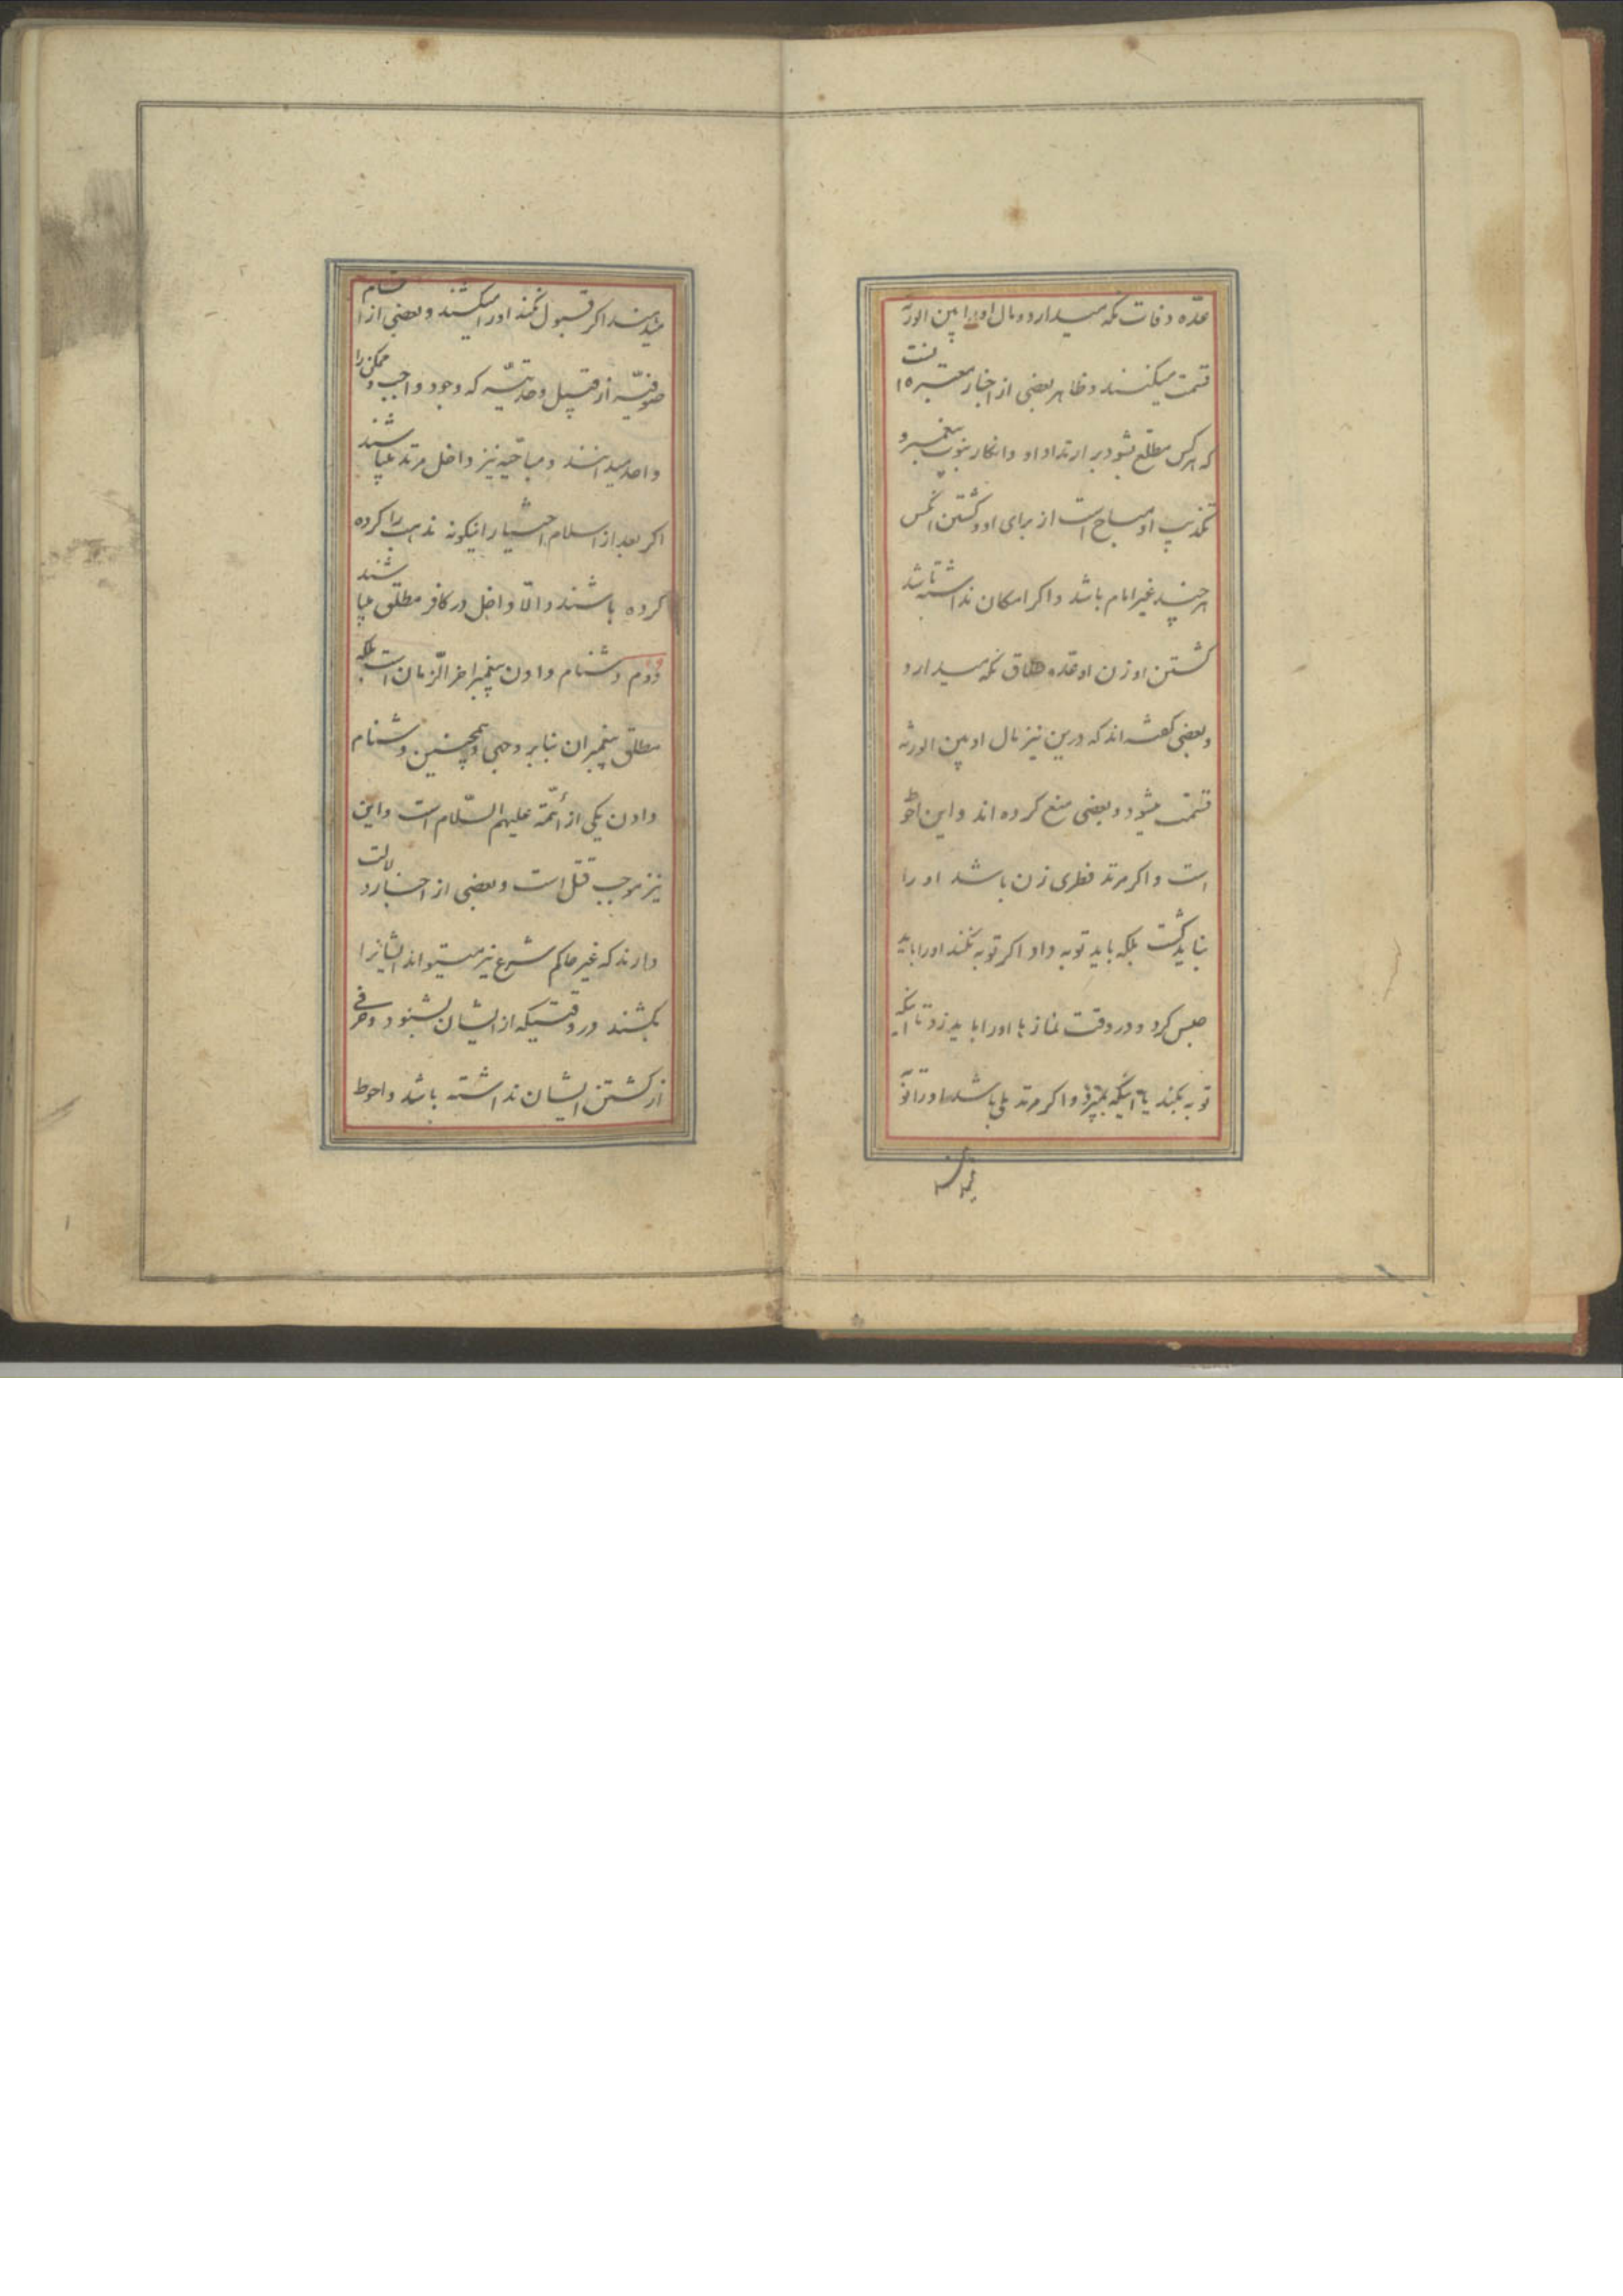 عدّه وفات نگه میدارد و مال او را بین الورثه
قسمت میکنند و ظاهر بعضی از اخبار معتبره اینست
که هرکس مطلع شود بر ارتداد او و انکار نبوت پیغمبر و
تکذیب او مباح است از برای او کشتن انکس
هرچند غیر امام باشد و اکر امکان نداشته باشد
کشتن او زن او عده طلاق نگه میدارد
و بعضی کفته اند که درین نیز مال او بین الورثه
قسمت میشود و بعضی منع کرده اند و این احوط
است و اکر مرتد فطری زن باشد او را
نباید کشت بلکه باید توبه داد اکر توبه نکند او را باید
حبس کرد و در وقت نمازها او را باید زد تا انکه
توبه بکند یا آنیکه بمیرد و اکر مرتد ملی باشد او را توبه
میدهند
میدهند اکر قبول نکند او را میکشند و بعضی از اقسام
صوفیّه از قبیل وحدتیّه که وجود واجب و ممکن را
واحد میدانند و مباحیّه نیز داخل مرتد میباشند
اکر بعد از اسلام اختیار اینکونه مذهب را کرده
کرده باشند و الّا داخل در کافر مطلق میباشند
دوم دشنام دادن پیغمبر اخر الزّمان است بلکه
مطلق پیغمبران بنابر وجهی و همچنین دشنام
دادن یکی از أئمّه علیهم السّلام است و این
نیز موجب قتل است و بعضی از اخبار دلالت
دارند که غیر حاکم شرع نیز میتواند ایشانرا
بکشند در وقتیکه از ایشان بشنود و خوفی
از کشتن ایشان نداشته باشد و احوط